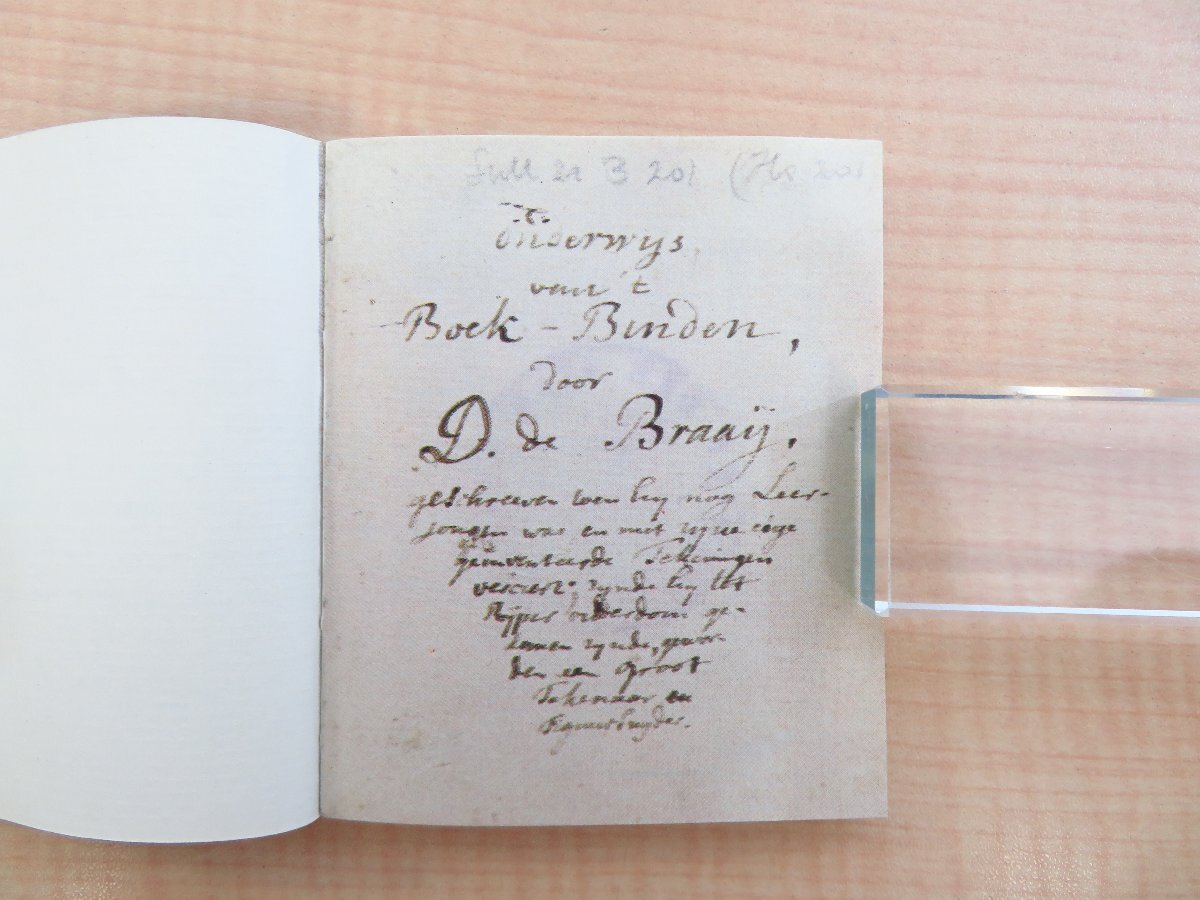 21 B 201 (Hs 201
't
onderwijs
van 't
Boek - Binden,
door
D. de Braaij.
geschreeven toen hij nog Leer-
jongen was en met zijne eige
geinventeerde Tekeningen
verciert. zijnde hij tot
Rijper ouderdom ge-
komen zijnde, gewor-
den een groot
Tekenaar en